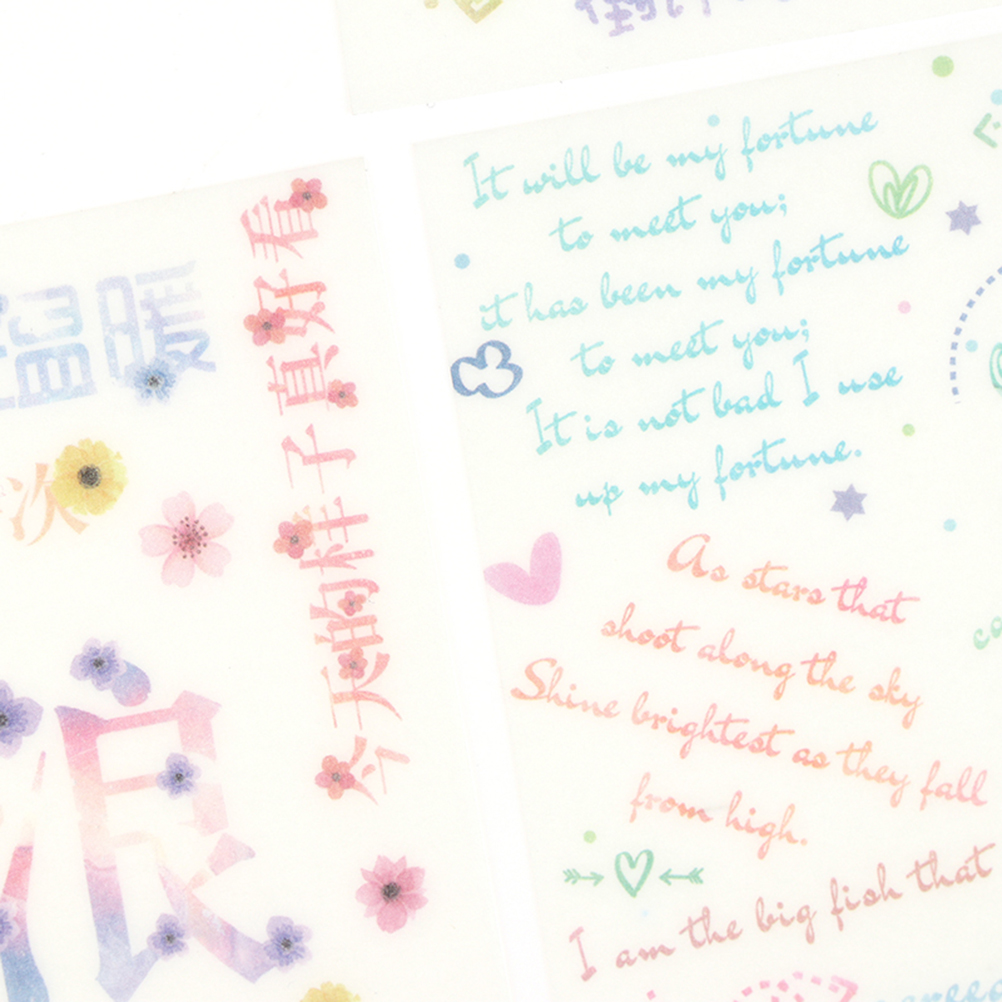 温暖
今天的样子真好看
次
浪
It will be my fortune
to meet you;
it has been my fortune
to meet you;
It is not bad I use
up my fortune.
As stars that
shoot along the sky
Shine brightest as they fall
from high.
I am the big fish that